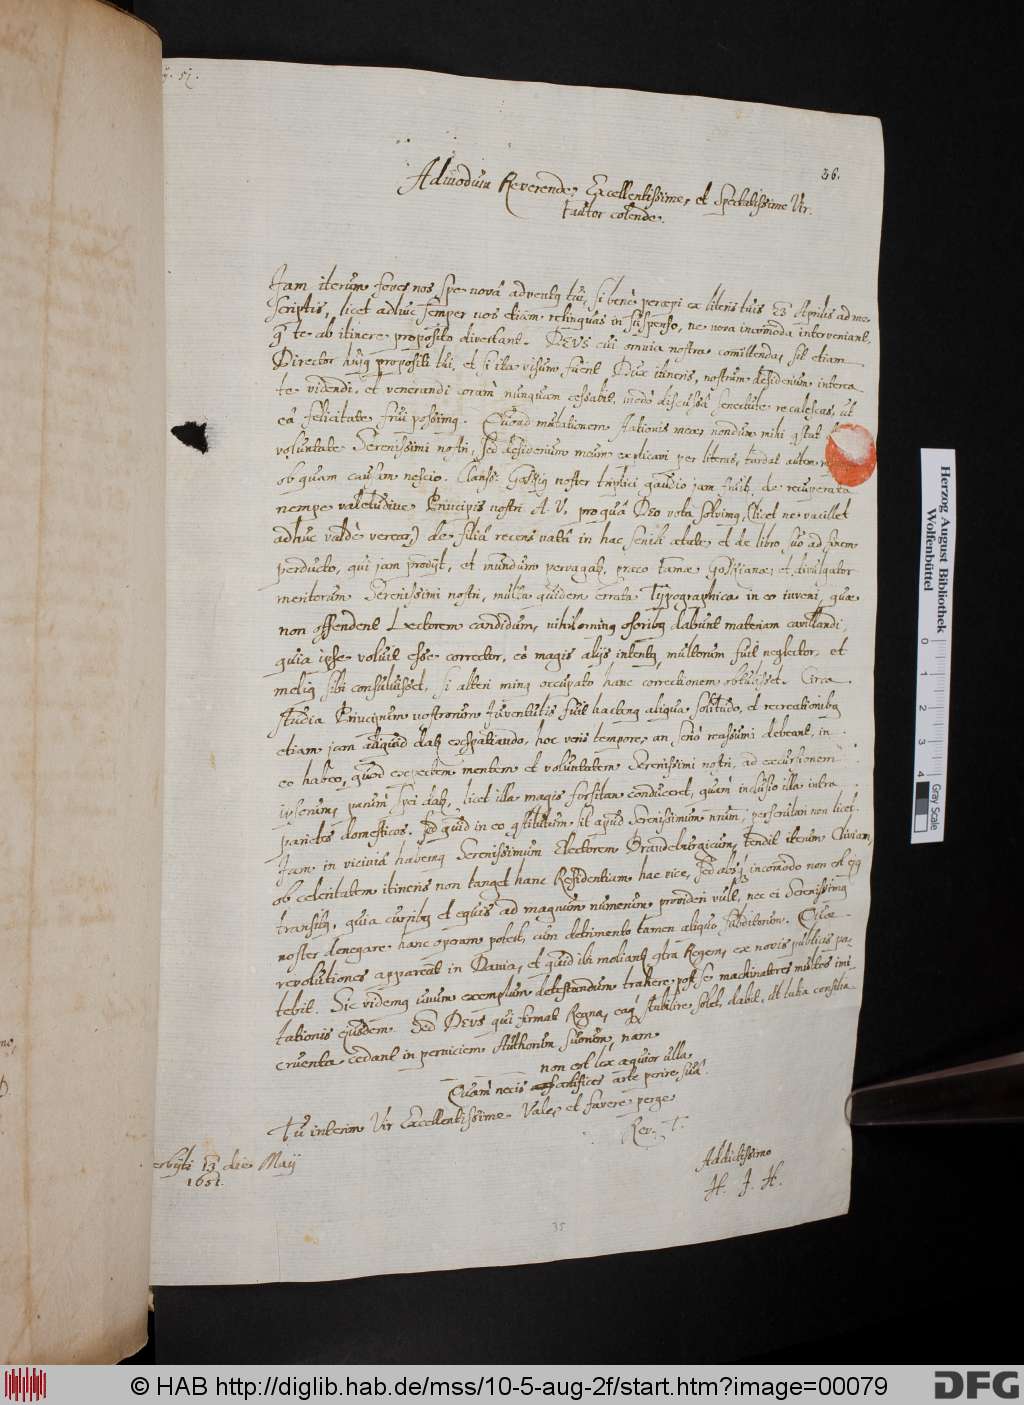 36.
Admodum Reverende, Excellentissime, et Spectatissime Vir.
Fautor colende.
Jam iterum foves nos spe novâ adventq tui, si benè percepi ex literis tuis 23 Aprilis ad me
scriptis, licet adhuc semper nos etiam relinquas in suspenso, ne nova incommoda interveniant,
q te ab itinere proposito divertant. DEVS cui omnia nostra comittenda, sit etiam
Director hujq propositi tui, et si ita visum fuerit Dux itineris, nostrum desiderium interea
te videndi, et venerandi coràm nunquam cessabit, modò discussâ senectute recalescas, ut
eâ felicitate frui possimq. Quoad mutationem stationis meæ, nondum mihi qstat de
voluntate Serenissimi nostri, sed desiderium meum explicavi per literas, tardat autem
ob quam causam nescio. Clariss: Gosskiq noster triplici gaudio jam fruit, de recuperata
nempe valetudine Principis nostri A. V. pro quâ DEO vota solvimq, (licet ne vacillet
adhuc valdè verear) de filiâ recens natâ in hac senili ætate, et de libro suo ad finem
perducto, qui jam prodijt, et mundum pervagat, præco famæ Gosskianæ, et divulgator
meritorum Serenissimi nostri, multa quidem errata Typographica in eo inveni, quæ
non offendent Lectorem candidum, nihilominq osoribq dabunt materiam cavillandi,
quia ipse voluit esse corrector, eò magis alijs intentq, multorum fuit neglector, et
meliq sibi consuluisset, si alteri minq occupato hanc correctionem obtulisset. Circa
studia Principum nostrorum Juventutis fuit hactenq aliqua solitudo, et recreationibq
etiam jam aliquid dat exspatiando, hoc veris tempore, an seriò reassumi debeant, in
eo habeo, quod exspectem mentem et voluntatem Serenissimi nostri, ad excursionem
ipsorum, parùm spei dat, licet illa magis forsitan conduceret, quàm inclusio illa intra
parietes domesticos. Sed quid in eo qstitutum sit apud Serenissimum nrum, perscrutari non licet.
Jam in viciniâ habemq Serenissimum Electorem Brandeburgicum, tendit iterum Cliviam,
ob celeritatem itineris non tanget hanc Residentiam hac vice, sed absq incomodo non est ejq
transitq, quia curribq et equis ad magnum numerum provideri vult, nec ei Serenissimq
noster denegare hanc operam potest, cum detrimento tamen aliquo subditorum. Quæ
revolutiones appareāt in Dania, et quid ibi moliant qtra Regem, ex novis publicis pa-
tebit. Sic videmq unum exemplum detestandum trahere post se machinatores multos imi-
tationis ejusdem. Sed DEVS qui firmat Regna, eaq stabilire solet, dabit, ut talia consilia
cruenta cedant in perniciem Authorum suorum, nam
non est lex æquior ulla
Quàm necis artifices arte perire suâ.
Tu interim Vir Excellentissime Vale, et favere perge
Rev. T.
Addictissimo
H. J. H.
13 die Maij
1651.
35
Herzog August Bibliothek
Wolfenbüttel
0 1 2 3 4
Gray Scale
© HAB http://diglib.hab.de/mss/10-5-aug-2f/start.htm?image=00079
DFG